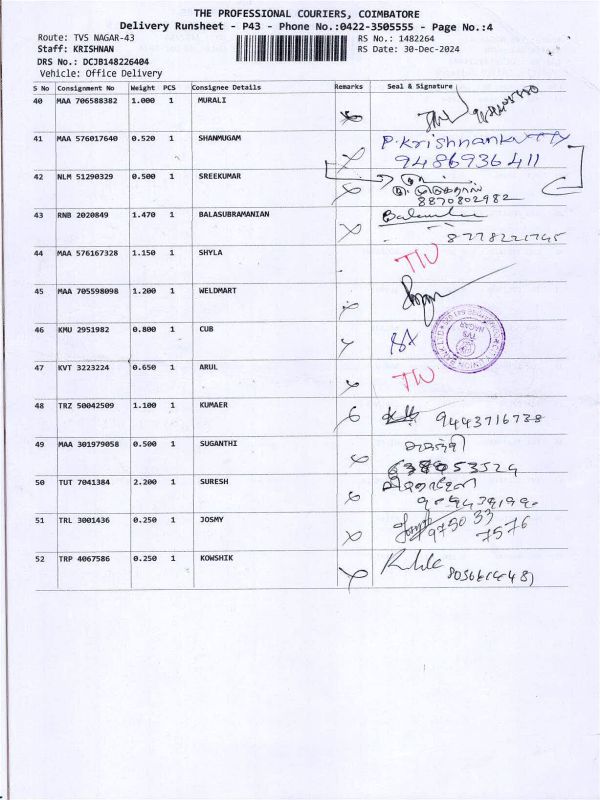 THE PROFESSIONAL COURIERS, COIMBATORE
Delivery Runsheet - P43 - Phone No.:0422-3505555 - Page No.:4
Route: TVS NAGAR-43
RS No.: 1482264
Staff: KRISHNAN
RS Date: 30-Dec-2024
DRS No.: DCJB148226404
Vehicle: Office Delivery
S No Consignment No Weight PCS Consignee Details Remarks Seal & Signature
40 MAA 706588382 1.000 1 MURALI
41 MAA 576017640 0.520 1 SHANMUGAM P.Krishnankutty
9486936411
42 NLM 51290329 0.500 1 SREEKUMAR
8870802982
43 RNB 2020849 1.470 1 BALASUBRAMANIAN
8778221745
44 MAA 576167328 1.150 1 SHYLA
45 MAA 705598098 1.200 1 WELDMART
46 KMU 2951982 0.800 1 CUB
TVS
NAGAR
47 KVT 3223224 0.650 1 ARUL
48 TRZ 50042509 1.100 1 KUMAER 9443716738
49 MAA 301979058 0.500 1 SUGANTHI
50 TUT 7041384 2.200 1 SURESH
51 TRL 3001436 0.250 1 JOSMY
975033
7576
52 TRP 4067586 0.250 1 KOWSHIK